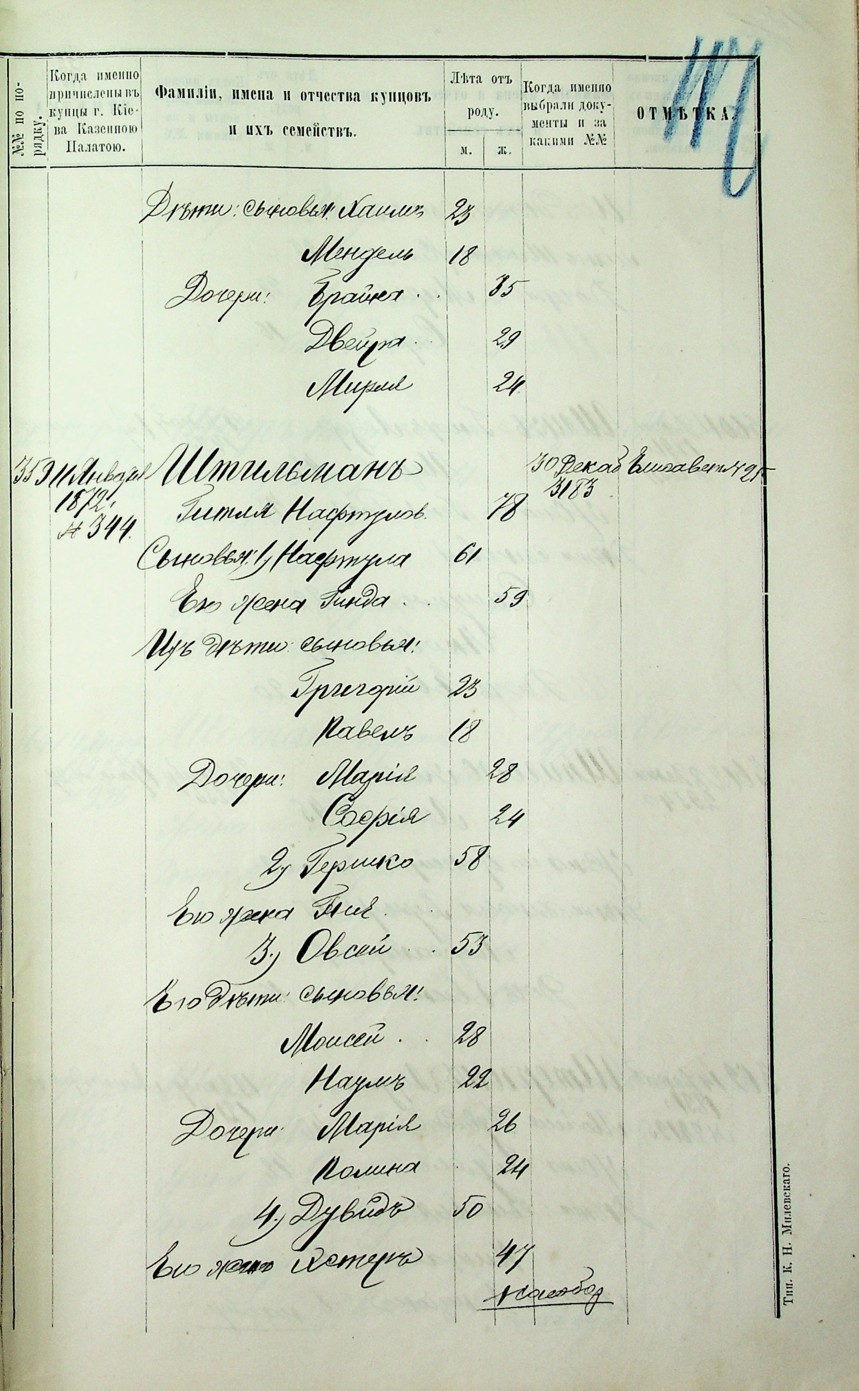 №№ по по-
рядку.
Когда именно
причислены въ
купцы г. Кіе-
ва Казенною
Палатою.
Фамиліи, имена и отчества купцовъ
и ихъ семействъ.
Лѣта отъ
роду.
м.
ж.
Когда именно
выбрали доку-
менты и за
какими №№
ОТМѢТКА.
Дѣти: сыновья: Хаимъ 23
Мендель 18
Дочери: Брайна 35
Двейра 29
Мирля 24
353 11 Января Штильманъ 30 Декаб Елисавет № 25
1872 г. 3183
Гитля Нафтулов. 78
№ 344.
Сыновья: 1) Нафтула 61
Его жена Гинда 59
Ихъ дѣти: сыновья:
Григорій 23
Павелъ 18
Дочери: Марія 28
Софія 24
2) Гершко 58
Его жена
3) Овсей 53
Его дѣти: сыновья:
Моисей 28
Наумъ 22
Дочери: Марія 26
Полина 24
4) Дувидъ 50
Его жена Эстеръ 47
На обор
Тип. К. Н. Милевскаго.